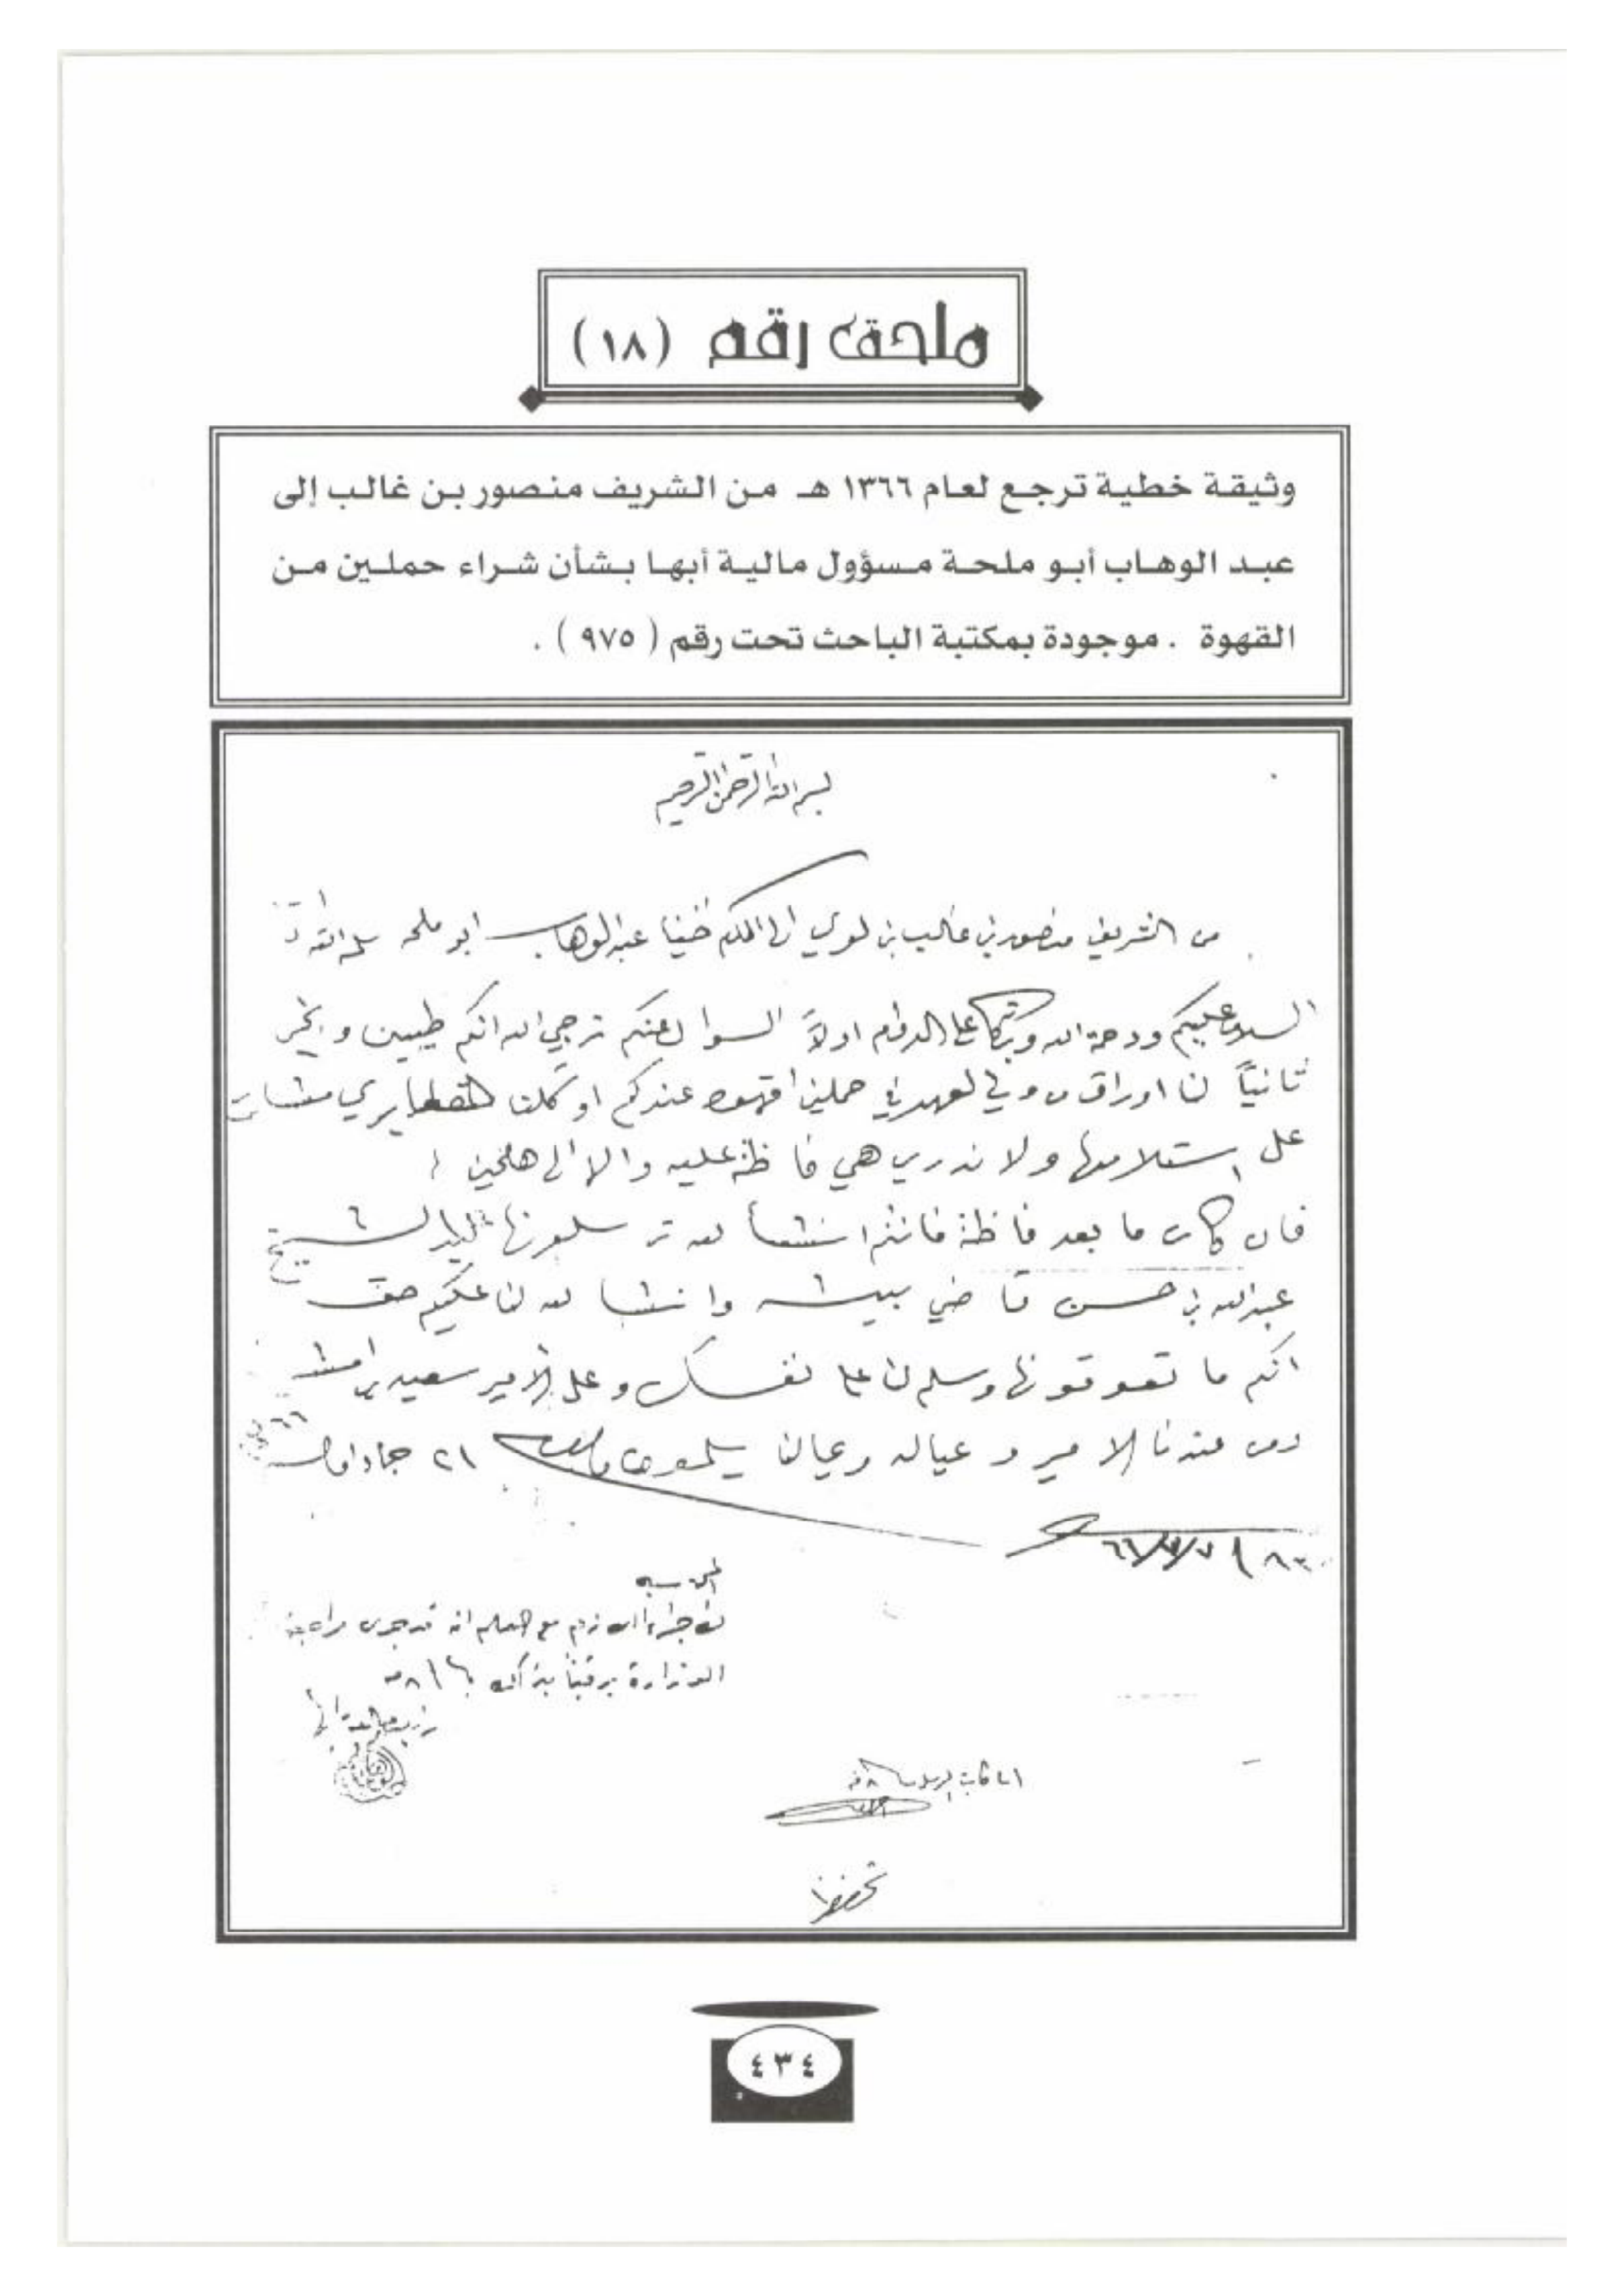 ملحق رقم (١٨)
وثيقة خطية ترجع لعام ١٣٦٦ هـ من الشريف منصور بن غالب إلى
عبد الوهاب أبو ملحة مسؤول مالية أبها بشأن شراء حملين من
القهوة . موجودة بمكتبة الباحث تحت رقم ( ٩٧٥ ) .
بسم الله الرحمن الرحيم
من الشريف منصور بن غالب بن لوي الى المكرم عبد الوهاب ابو ملحه سلمه الله
السلام عليكم ورحمة الله وبركاته على الدوام اولاً السوال عنكم نرجي الله انكم طيبين وبخير
ثانياً لنا اوراق في حملين قهوه عندكم او كلنا
على استلامها ولا ندري هي فاظة عليه والا الى هلحين
فان كان ما بعد فاظة فانتم انشأ لله ترسلونها الشيخ
عبدالله بن حسن قاضي بيشه وانشا لله لنا عليكم حق
انكم ما تعوقونها وسلم لنا على نفسك وعلى الامير سعيد
ومن عندنا الامير وعياله وعيالنا يسلمون ٢١ جماد اول
المحاسبه
مع العلم انه قد جرى
الوزارة برقياً بذلك
تحفظ
٤٣٤